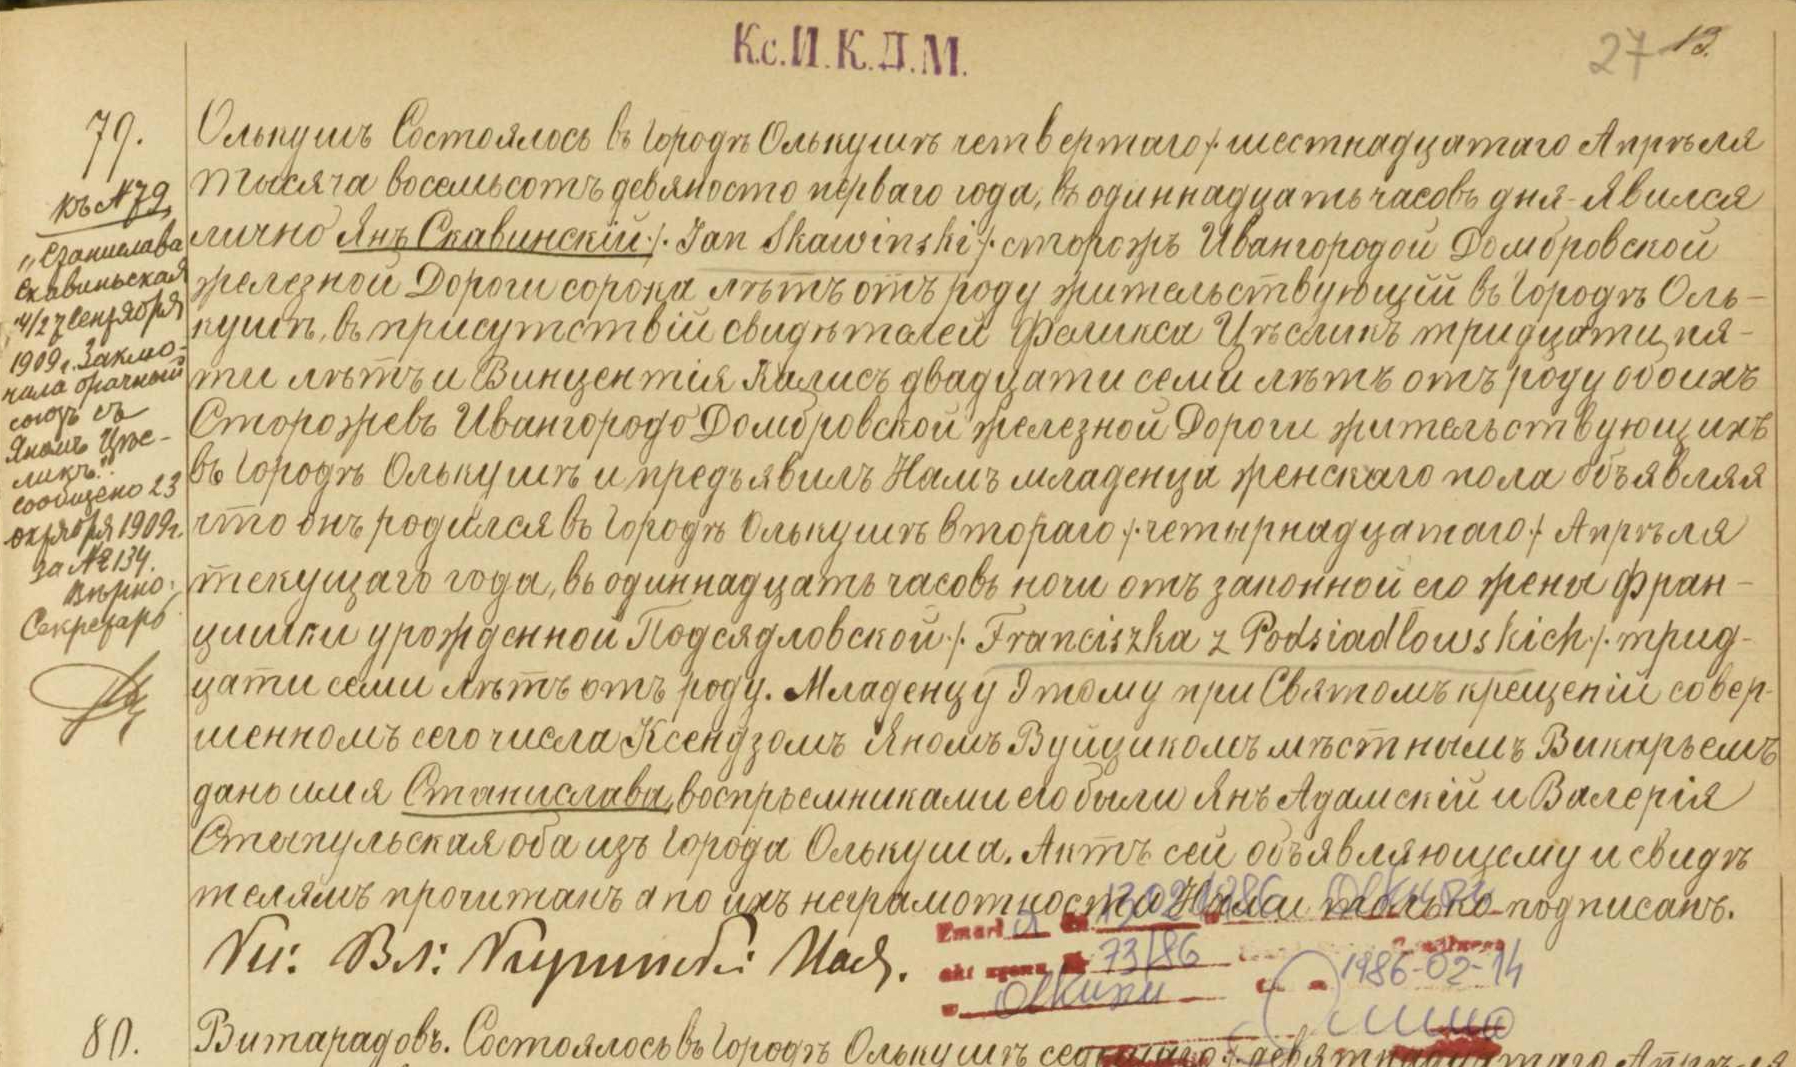 Кс.И.К.Д.М.
27 13.
79.
къ №79
"Станислава
Скавиньская
14/27 Сентября
1909 г. Заклю-
чила брачный
союзъ съ
Яномъ Цѣс-
ликъ"
сообщено 23
октября 1909 г.
за №134.
Вѣрно:
Секретарь
Олькушъ Состоялось въ Городѣ Олькушѣ четвертаго /: шестнадцатаго Апрѣля
тысяча восемьсотъ девяносто перваго года, въ одиннадцать часовъ дня - Явился
лично Янъ Скавинскій /: Jan Skawinski /: сторожъ Ивангородой Домбровской
железной Дороги сорока лѣтъ отъ роду жительствующій въ Городѣ Оль-
кушѣ, въ присутствій свидѣтелей Феликса Цѣсликъ тридцати пя-
ти лѣтъ и Винцентія Калисъ двадцати семи лѣтъ отъ роду обоихъ
Сторожевъ Ивангородо Домбровской железной Дороги жительствующихъ
въ Городѣ Олькушѣ и предъявилъ Намъ младенца женскаго пола объявляя
что онъ родился въ Городѣ Олькушѣ втораго /: четырнадцатаго /: Апрѣля
текущаго года, въ одиннадцать часовъ ночи отъ законной его жены Фран-
цишки урожденной Подсядловской /: Franciszka z Podsiadlowskich /: трид-
цати семи лѣтъ отъ роду. Младенцу Этому при Святомъ крещеній совер-
шенномъ сего числа Ксендзомъ Яномъ Вуйцикомъ мѣстнымъ Викарьемъ
дано имя Станислава, воспрьемниками его были Янъ Адамскій и Валерія
Стыпульская оба из Города Олькуша. Актъ сей объявляющему и свидѣ
телямъ прочитанъ а по ихъ неграмотности Нами только подписанъ.
Zmarł a dn. 13.02.1986 Olkusz
akt zgonu Nr 73/86
w Olkuszu 1986-02-14
80.
Витарадовъ. Состоялось въ Городѣ Олькушѣ седьмаго /: девятнадцатаго Апрѣля